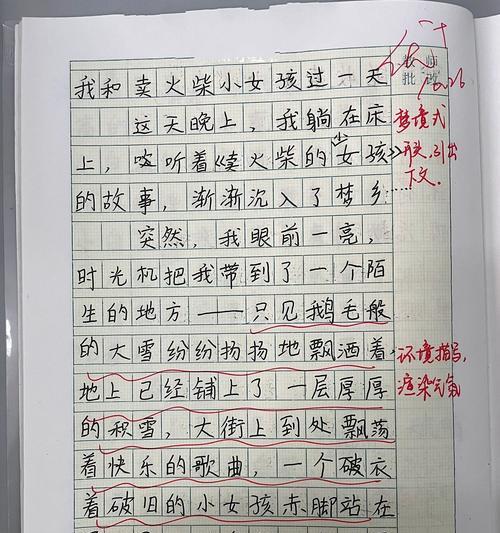 我和卖火柴小女孩过一天
这天晚上，我躺在床
上，听着《卖火柴的小女孩》
的故事，渐渐沉入了梦乡……
突然，我眼前一亮，
时光机把我带到了一个陌
生的地方——只见鹅毛般
的大雪纷纷扬扬地飘洒着
地上已经铺上了一层厚厚
的积雪，大街上到处飘荡
着快乐的歌曲，一个破衣
着破旧的小女孩赤脚站在
教师
批改
梦境式
开头，引出
下文。
环境描写，
渲染气氛